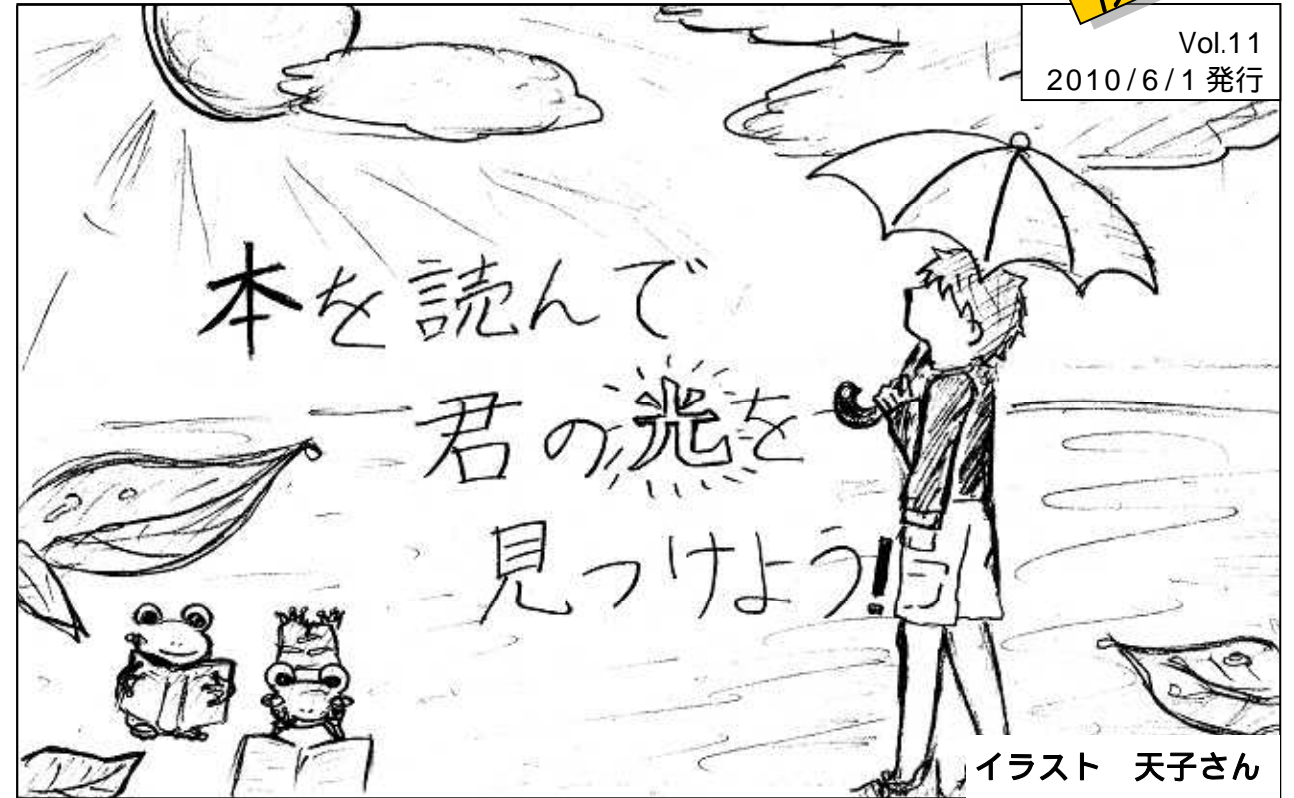 Vol.11
2010/6/1 発行
本を読んで
君の光を
見つけよう!
イラスト　天子さん